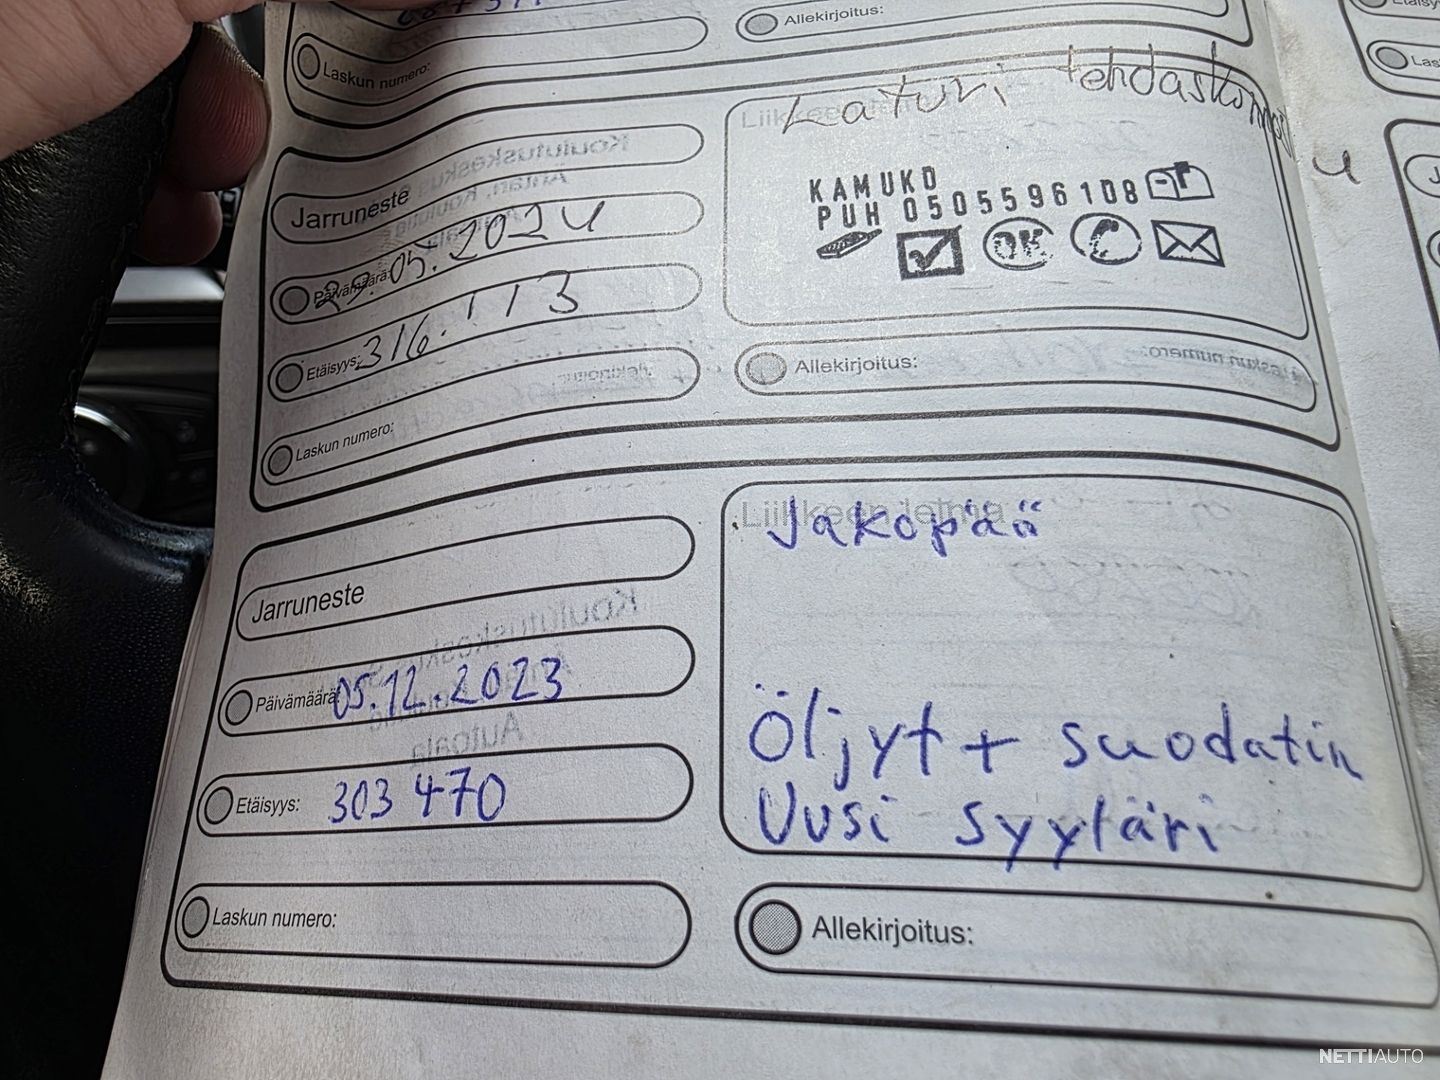 Allekirjoitus:
Laskun numero:
Laturi tehdaskunnost
u
Jarruneste
KAMUKO
PUH 0505596108
OK
Päivämäärä: 29.05.2024
Etäisyys: 316.113
Laskun numero:
Allekirjoitus:
Liikkeen leima
Jakopää
Jarruneste
Päivämäärä: 05.12.2023
Öljyt + suodatin
Etäisyys: 303 470
Uusi syyläri
Laskun numero:
Allekirjoitus:
Koulutuskeskus
Autoala
NETTIAUTO